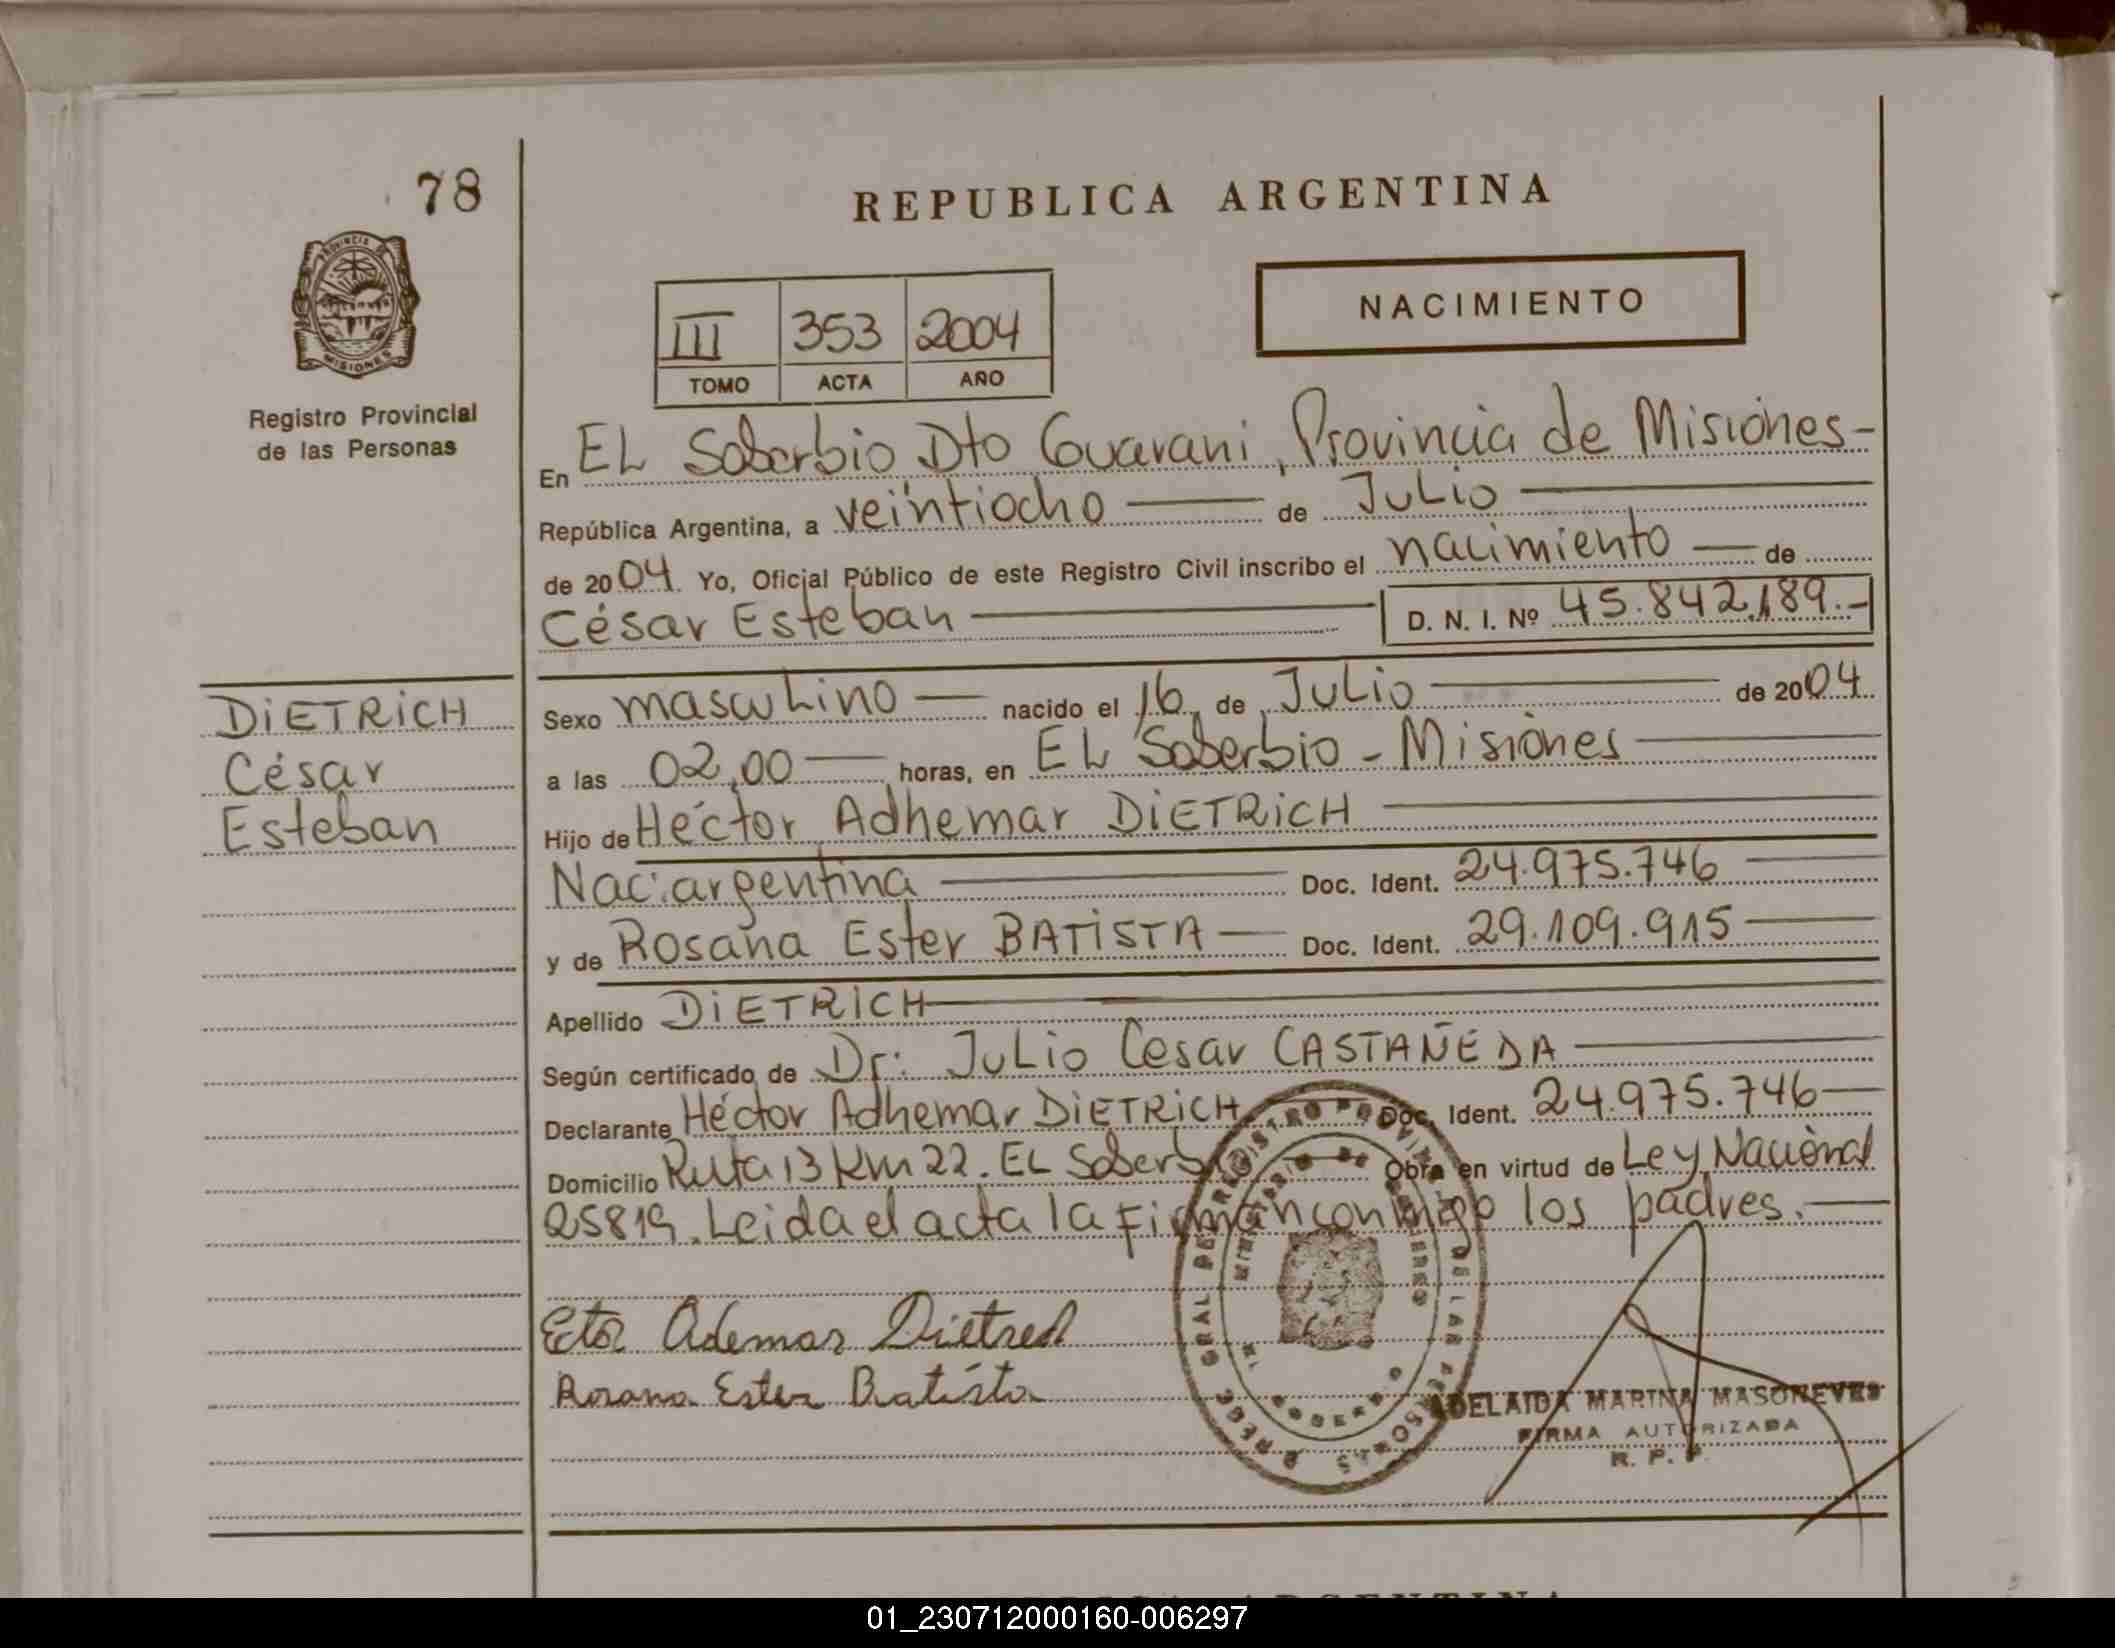 78
REPUBLICA ARGENTINA
PROVINCIA DE
MISIONES
Registro Provincial
de las Personas
III 353 2004
TOMO ACTA AÑO
NACIMIENTO
En EL Soberbio Dto Guarani, Provincia de Misiones-
República Argentina, a veintiocho de Julio
de 2004. Yo, Oficial Público de este Registro Civil inscribo el nacimiento de
César Esteban D. N. I. Nº 45.842.189.-
DiETRiCH
César
Esteban
Sexo mascuLino nacido el 16 de JuLio de 2004
a las 02,00 horas, en EL Soberbio - Misiones
Hijo de Héctor Adhemar DiETRiCH
Nac: argentina Doc. Ident. 24.975.746
y de Rosana Ester BATiSTA Doc. Ident. 29.109.915
Apellido DiETRiCH
Según certificado de Dr: JuLio Cesar CASTAÑEDA
Declarante Héctor Adhemar DiETRiCH Doc. Ident. 24.975.746
Domicilio Ruta 13 Km 22. EL Soberbio Obra en virtud de Ley Nacional
25819. Leida el acta la firman conmigo los padres.
Ector Ademar Dietrech
Rosana Ester Batista
REGISTRO PROVINCIAL DE LAS PERSONAS
MINISTERIO DE GOBIERNO
ADELAIDA MARINA MASONEVES
FIRMA AUTORIZADA
R. P. P.
ARGENTINA
01_230712000160-006297